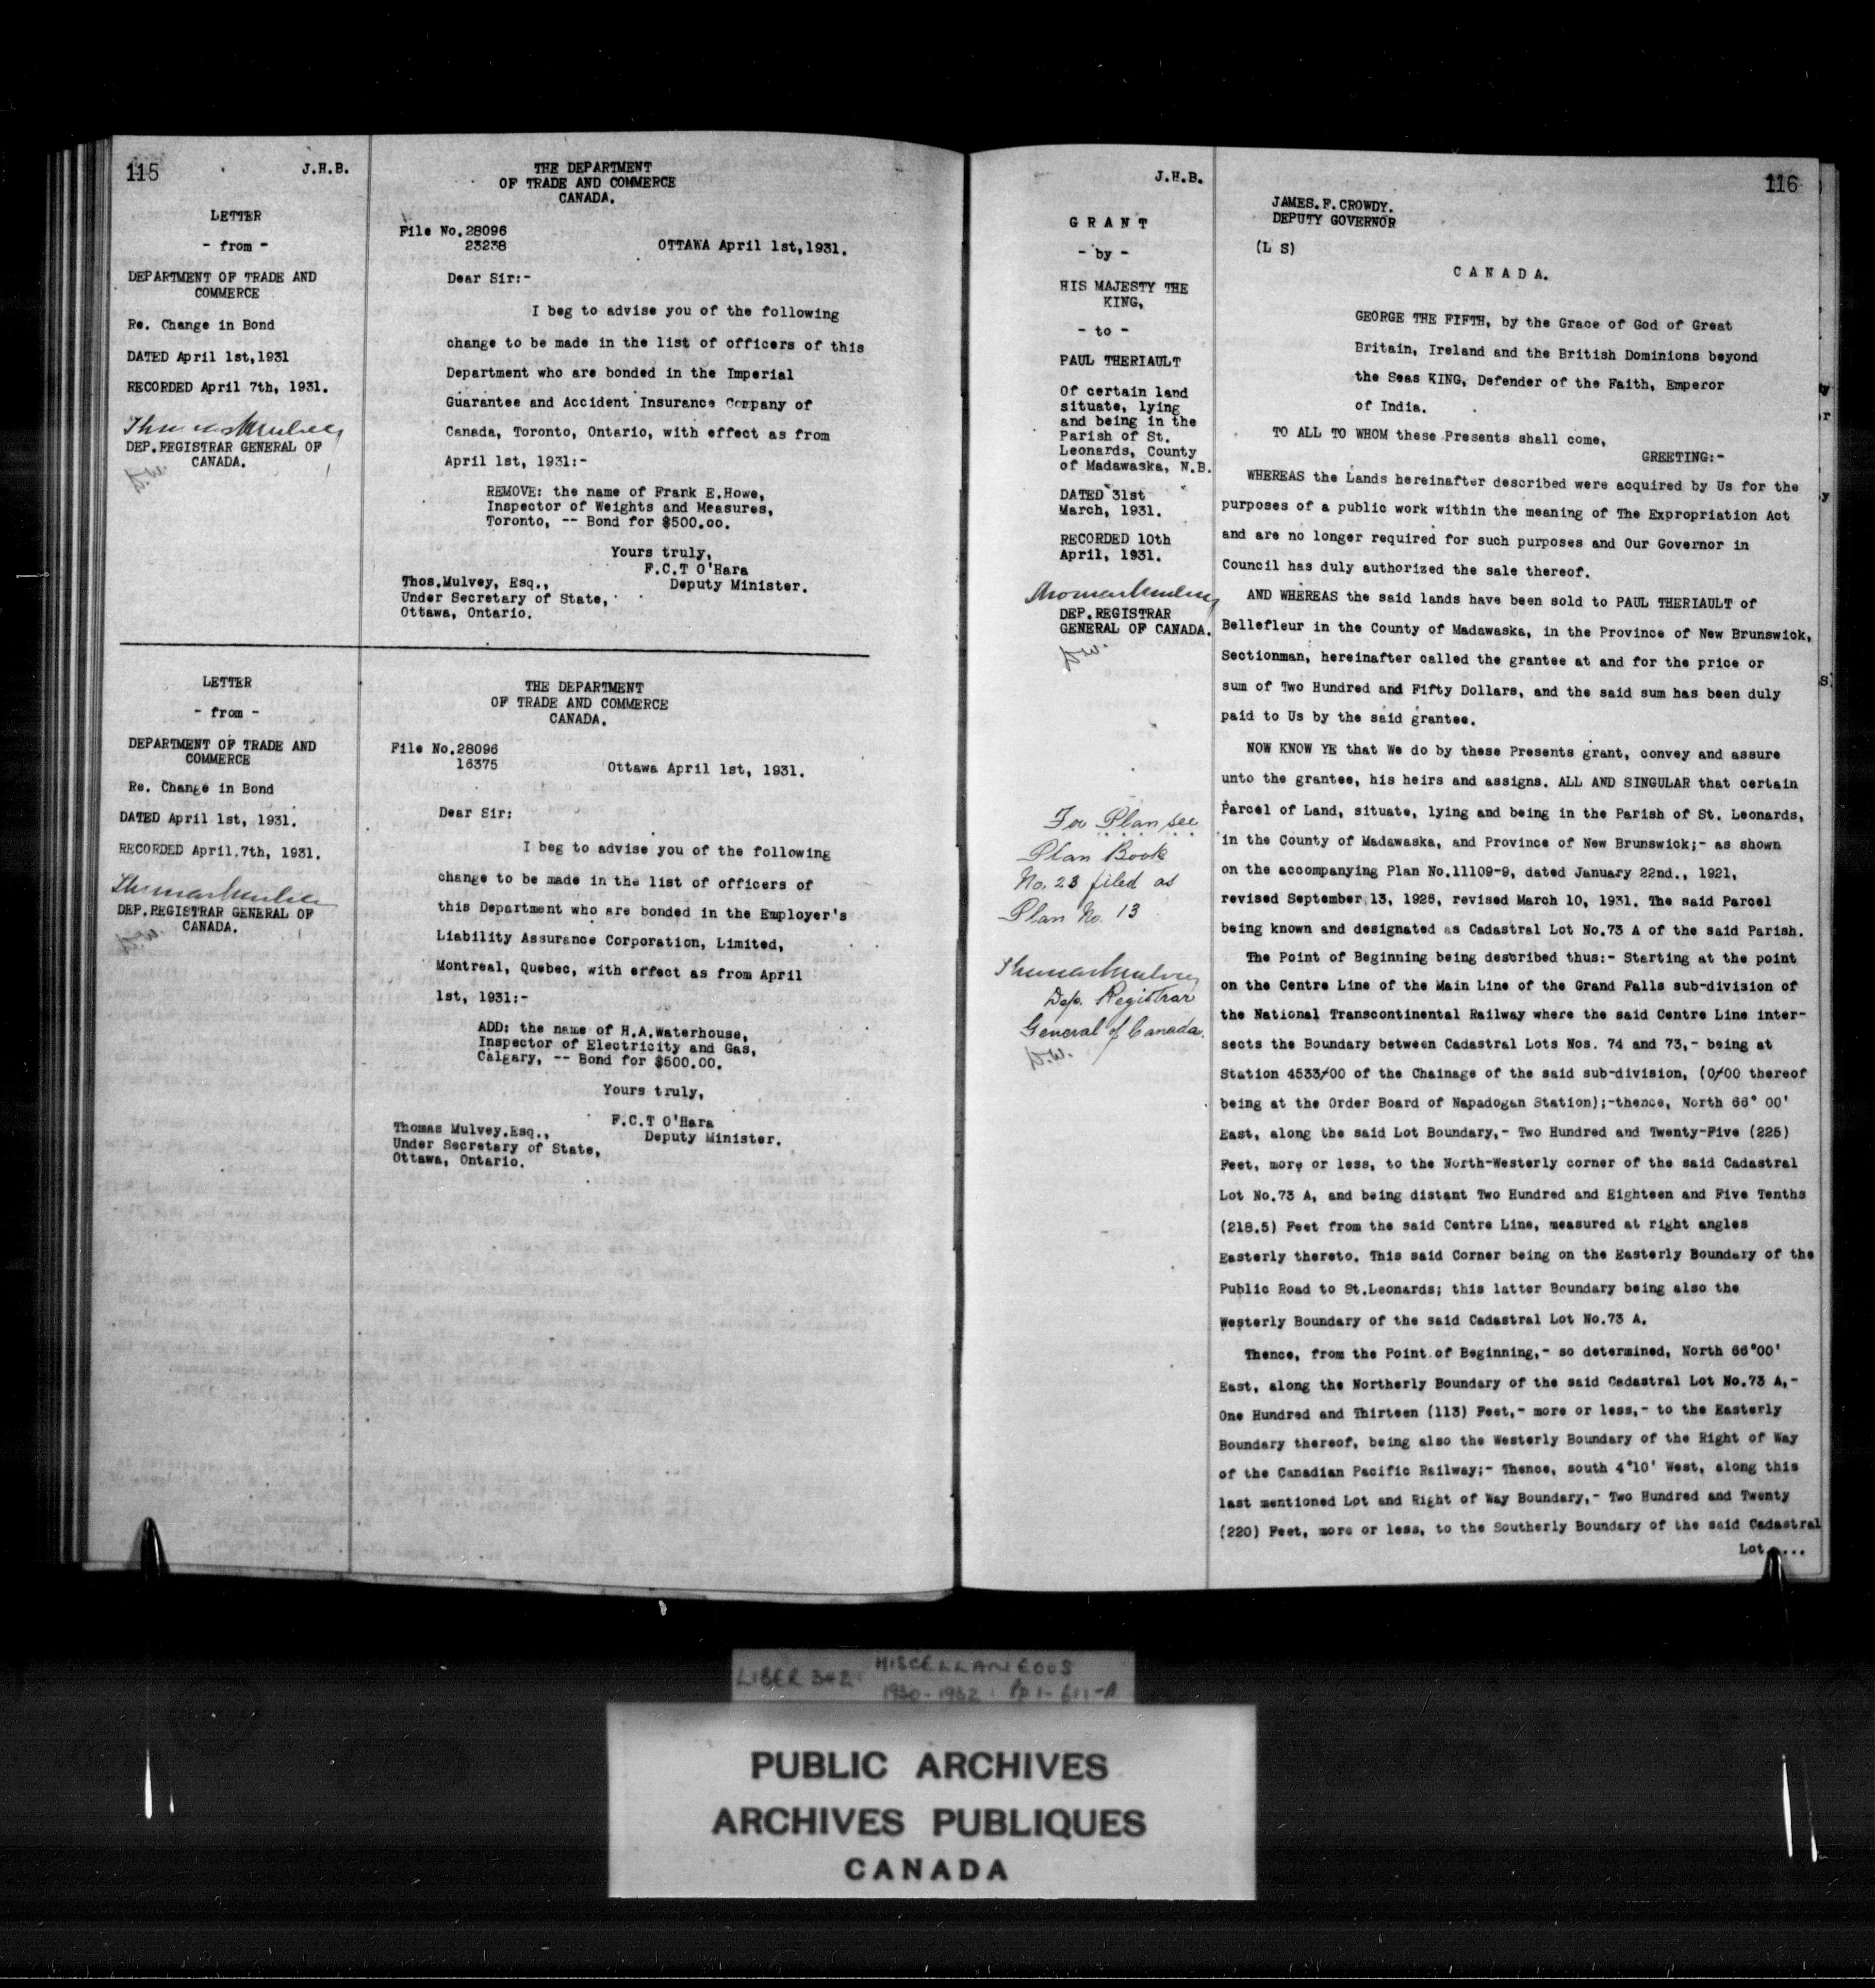 115
J.H.B.
LETTER
- from -
DEPARTMENT OF TRADE AND
COMMERCE
Re. Change in Bond
DATED April 1st,1931
RECORDED April 7th, 1931.
Thomas Mulvey
DEP.REGISTRAR GENERAL OF
CANADA.
THE DEPARTMENT
OF TRADE AND COMMERCE
CANADA.
File No.28096
23238
OTTAWA April 1st,1931.
Dear Sir:-
I beg to advise you of the following
change to be made in the list of officers of this
Department who are bonded in the Imperial
Guarantee and Accident Insurance Company of
Canada, Toronto, Ontario, with effect as from
April 1st, 1931:-
REMOVE: the name of Frank E.Howe,
Inspector of Weights and Measures,
Toronto, -- Bond for $500.oo.
Yours truly,
F.C.T O'Hara
Deputy Minister.
Thos.Mulvey, Esq.,
Under Secretary of State,
Ottawa, Ontario.
LETTER
- from -
DEPARTMENT OF TRADE AND
COMMERCE
Re. Change in Bond
DATED April 1st, 1931.
RECORDED April.7th, 1931.
Thomas Mulvey
DEP.REGISTRAR GENERAL OF
CANADA.
THE DEPARTMENT
OF TRADE AND COMMERCE
CANADA.
File No.28096
16375
Ottawa April 1st, 1931.
Dear Sir:
I beg to advise you of the following
change to be made in the list of officers of
this Department who are bonded in the Employer's
Liability Assurance Corporation, Limited,
Montreal, Quebec, with effect as from April
1st, 1931:-
ADD: the name of H.A.Waterhouse,
Inspector of Electricity and Gas,
Calgary, -- Bond for $500.00.
Yours truly,
F.C.T O'Hara
Deputy Minister.
Thomas Mulvey.Esq.,
Under Secretary of State,
Ottawa, Ontario.
J.H.B.
116
G R A N T
- by -
HIS MAJESTY THE
KING,
- to -
PAUL THERIAULT
Of certain land
situate, lying
and being in the
Parish of St.
Leonards, County
of Madawaska, N.B.
DATED 31st
March, 1931.
RECORDED 10th
April, 1931.
Thomas Mulvey
DEP.REGISTRAR
GENERAL OF CANADA.
For Plan see
Plan Book
No. 23 filed as
Plan No. 13
Thomas Mulvey
Dep. Registrar
General of Canada.
JAMES.F.CROWDY.
DEPUTY GOVERNOR
(L S)
C A N A D A.
GEORGE THE FIFTH, by the Grace of God of Great
Britain, Ireland and the British Dominions beyond
the Seas KING, Defender of the Faith, Emperor
of India.
TO ALL TO WHOM these Presents shall come,
GREETING:-
WHEREAS the Lands hereinafter described were acquired by Us for the
purposes of a public work within the meaning of The Expropriation Act
and are no longer required for such purposes and Our Governor in
Council has duly authorized the sale thereof.
AND WHEREAS the said lands have been sold to PAUL THERIAULT of
Bellefleur in the County of Madawaska, in the Province of New Brunswick,
Sectionman, hereinafter called the grantee at and for the price or
sum of Two Hundred and Fifty Dollars, and the said sum has been duly
paid to Us by the said grantee.
NOW KNOW YE that We do by these Presents grant, convey and assure
unto the grantee, his heirs and assigns. ALL AND SINGULAR that certain
Parcel of Land, situate, lying and being in the Parish of St. Leonards,
in the County of Madawaska, and Province of New Brunswick;- as shown
on the accompanying Plan No.11109-9, dated January 22nd., 1921,
revised September 13, 1926, revised March 10, 1931. The said Parcel
being known and designated as Cadastral Lot No.73 A of the said Parish.
The Point of Beginning being described thus:- Starting at the point
on the Centre Line of the Main Line of the Grand Falls sub-division of
the National Transcontinental Railway where the said Centre Line inter-
sects the Boundary between Cadastral Lots Nos. 74 and 73,- being at
Station 4533/00 of the Chainage of the said sub-division, (0/00 thereof
being at the Order Board of Napadogan Station);-thence, North 66° 00'
East, along the said Lot Boundary,- Two Hundred and Twenty-Five (225)
Feet, more or less, to the North-Westerly corner of the said Cadastral
Lot No.73 A, and being distant Two Hundred and Eighteen and Five Tenths
(218.5) Feet from the said Centre Line, measured at right angles
Easterly thereto. This said Corner being on the Easterly Boundary of the
Public Road to St.Leonards; this latter Boundary being also the
Westerly Boundary of the said Cadastral Lot No.73 A.
Thence, from the Point of Beginning,- so determined, North 66°00'
East, along the Northerly Boundary of the said Cadastral Lot No.73 A,-
One Hundred and Thirteen (113) Feet,- more or less,- to the Easterly
Boundary thereof, being also the Westerly Boundary of the Right of Way
of the Canadian Pacific Railway;- Thence, south 4°10' West, along this
last mentioned Lot and Right of Way Boundary,- Two Hundred and Twenty
(220) Feet, more or less, to the Southerly Boundary of the said Cadastral
Lot....
LIBER 342: MISCELLANEOUS
1930-1932: Pp 1-611-A
PUBLIC ARCHIVES
ARCHIVES PUBLIQUES
CANADA